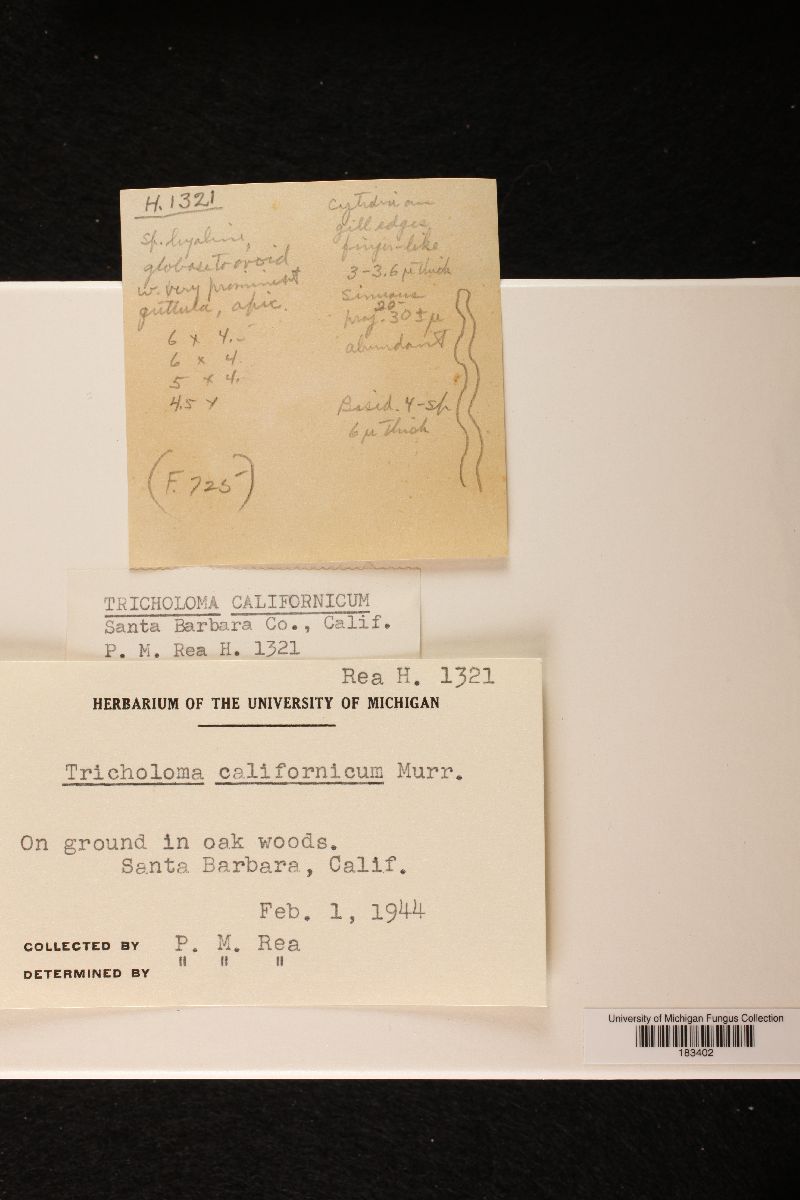 H. 1321
sp. hyaline,
globose to ovoid
w. very prominent
guttula, apic.
6 x 4.5
6 x 4.
5 x 4.
4.5 x
(F. 725)
cystidia on
gill edges,
finger-like
3-3.6 µ thick
sinuous
20-
proj. 30 ± µ
abundant
Basid. 4-sp
6 µ thick
TRICHOLOMA CALIFORNICUM
Santa Barbara Co., Calif.
P. M. Rea H. 1321
Rea H. 1321
HERBARIUM OF THE UNIVERSITY OF MICHIGAN
Tricholoma californicum Murr.
On ground in oak woods.
Santa Barbara, Calif.
Feb. 1, 1944
COLLECTED BY P. M. Rea
DETERMINED BY " " "
University of Michigan Fungus Collection
183402